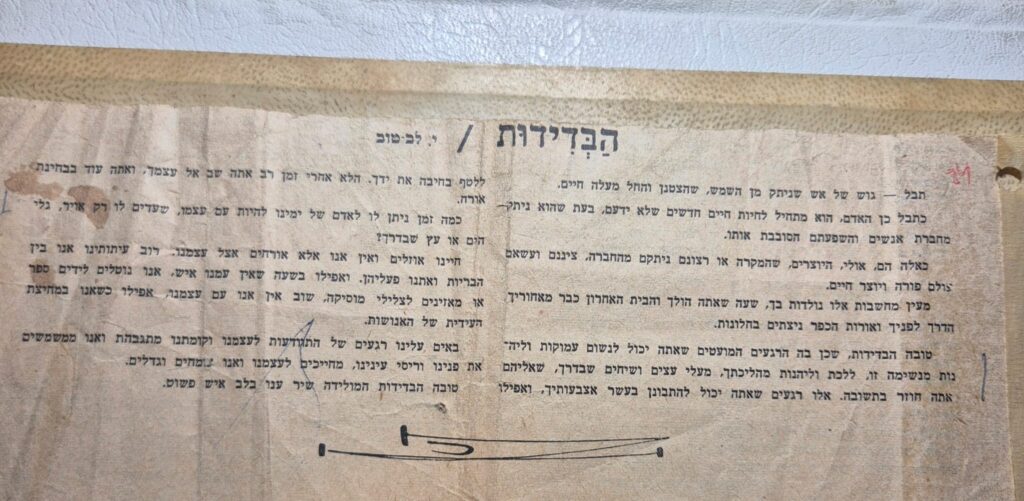 הַבְּדִידוּת / י. לב-טוב
תבל — גוש של אש שניתק מן השמש, שהצטנן והחל מעלה חיים.
כתבל כן האדם, הוא מתחיל לחיות חיים חדשים שלא ידעם, בעת שהוא ניתק
מחברת אנשים והשפעתם הסובבת אותו.
כאלה הם, אולי, היוצרים, שהמקרה או רצונם ניתקם מהחברה, ציננם ועשאם
עולם פורה ויוצר חיים.
מעין מחשבות אלו נולדות בך, שעה שאתה הולך והבית האחרון כבר מאחוריך,
הדרך לפניך ואורות הכפר ניצתים בחלונות.
טובה הבדידות, שכן בה הרגעים המועטים שאתה יכול לנשום עמוקות וליה־
נות מנשימה זו, ללכת וליהנות מהליכתך, מעלי עצים ושיחים שבדרך, שאליהם
אתה חוזר בתשובה. אלו רגעים שאתה יכול להתבונן בעשר אצבעותיך, ואפילו
ללטף בחיבה את ידך. הלא אחרי זמן רב אתה שב אל עצמך, ואתה עוד בבחינת
אורח.
כמה זמן ניתן לו לאדם של ימינו להיות עם עצמו, שעדים לו רק אויר, גלי
הים או עץ שבדרך?
חיינו אוזלים ואין אנו אלא אורחים אצל עצמנו. רוב עיתותינו אנו בין
הבריות ואתנו פעליהן. ואפילו בשעה שאין עמנו איש, אנו נוטלים לידים ספר
או מאזינים לצלילי מוסיקה, שוב אין אנו עם עצמנו, אפילו כשאנו במחיצת
העידית של האנושות.
באים עלינו רגעים של התוודעות לעצמנו וקומתנו מתגבהת ואנו ממשמשים
את פנינו וריסי עינינו, מחייכים לעצמנו ואנו צמחים וגדלים.
טובה הבדידות המולידה שיר ענו בלב איש פשוט.